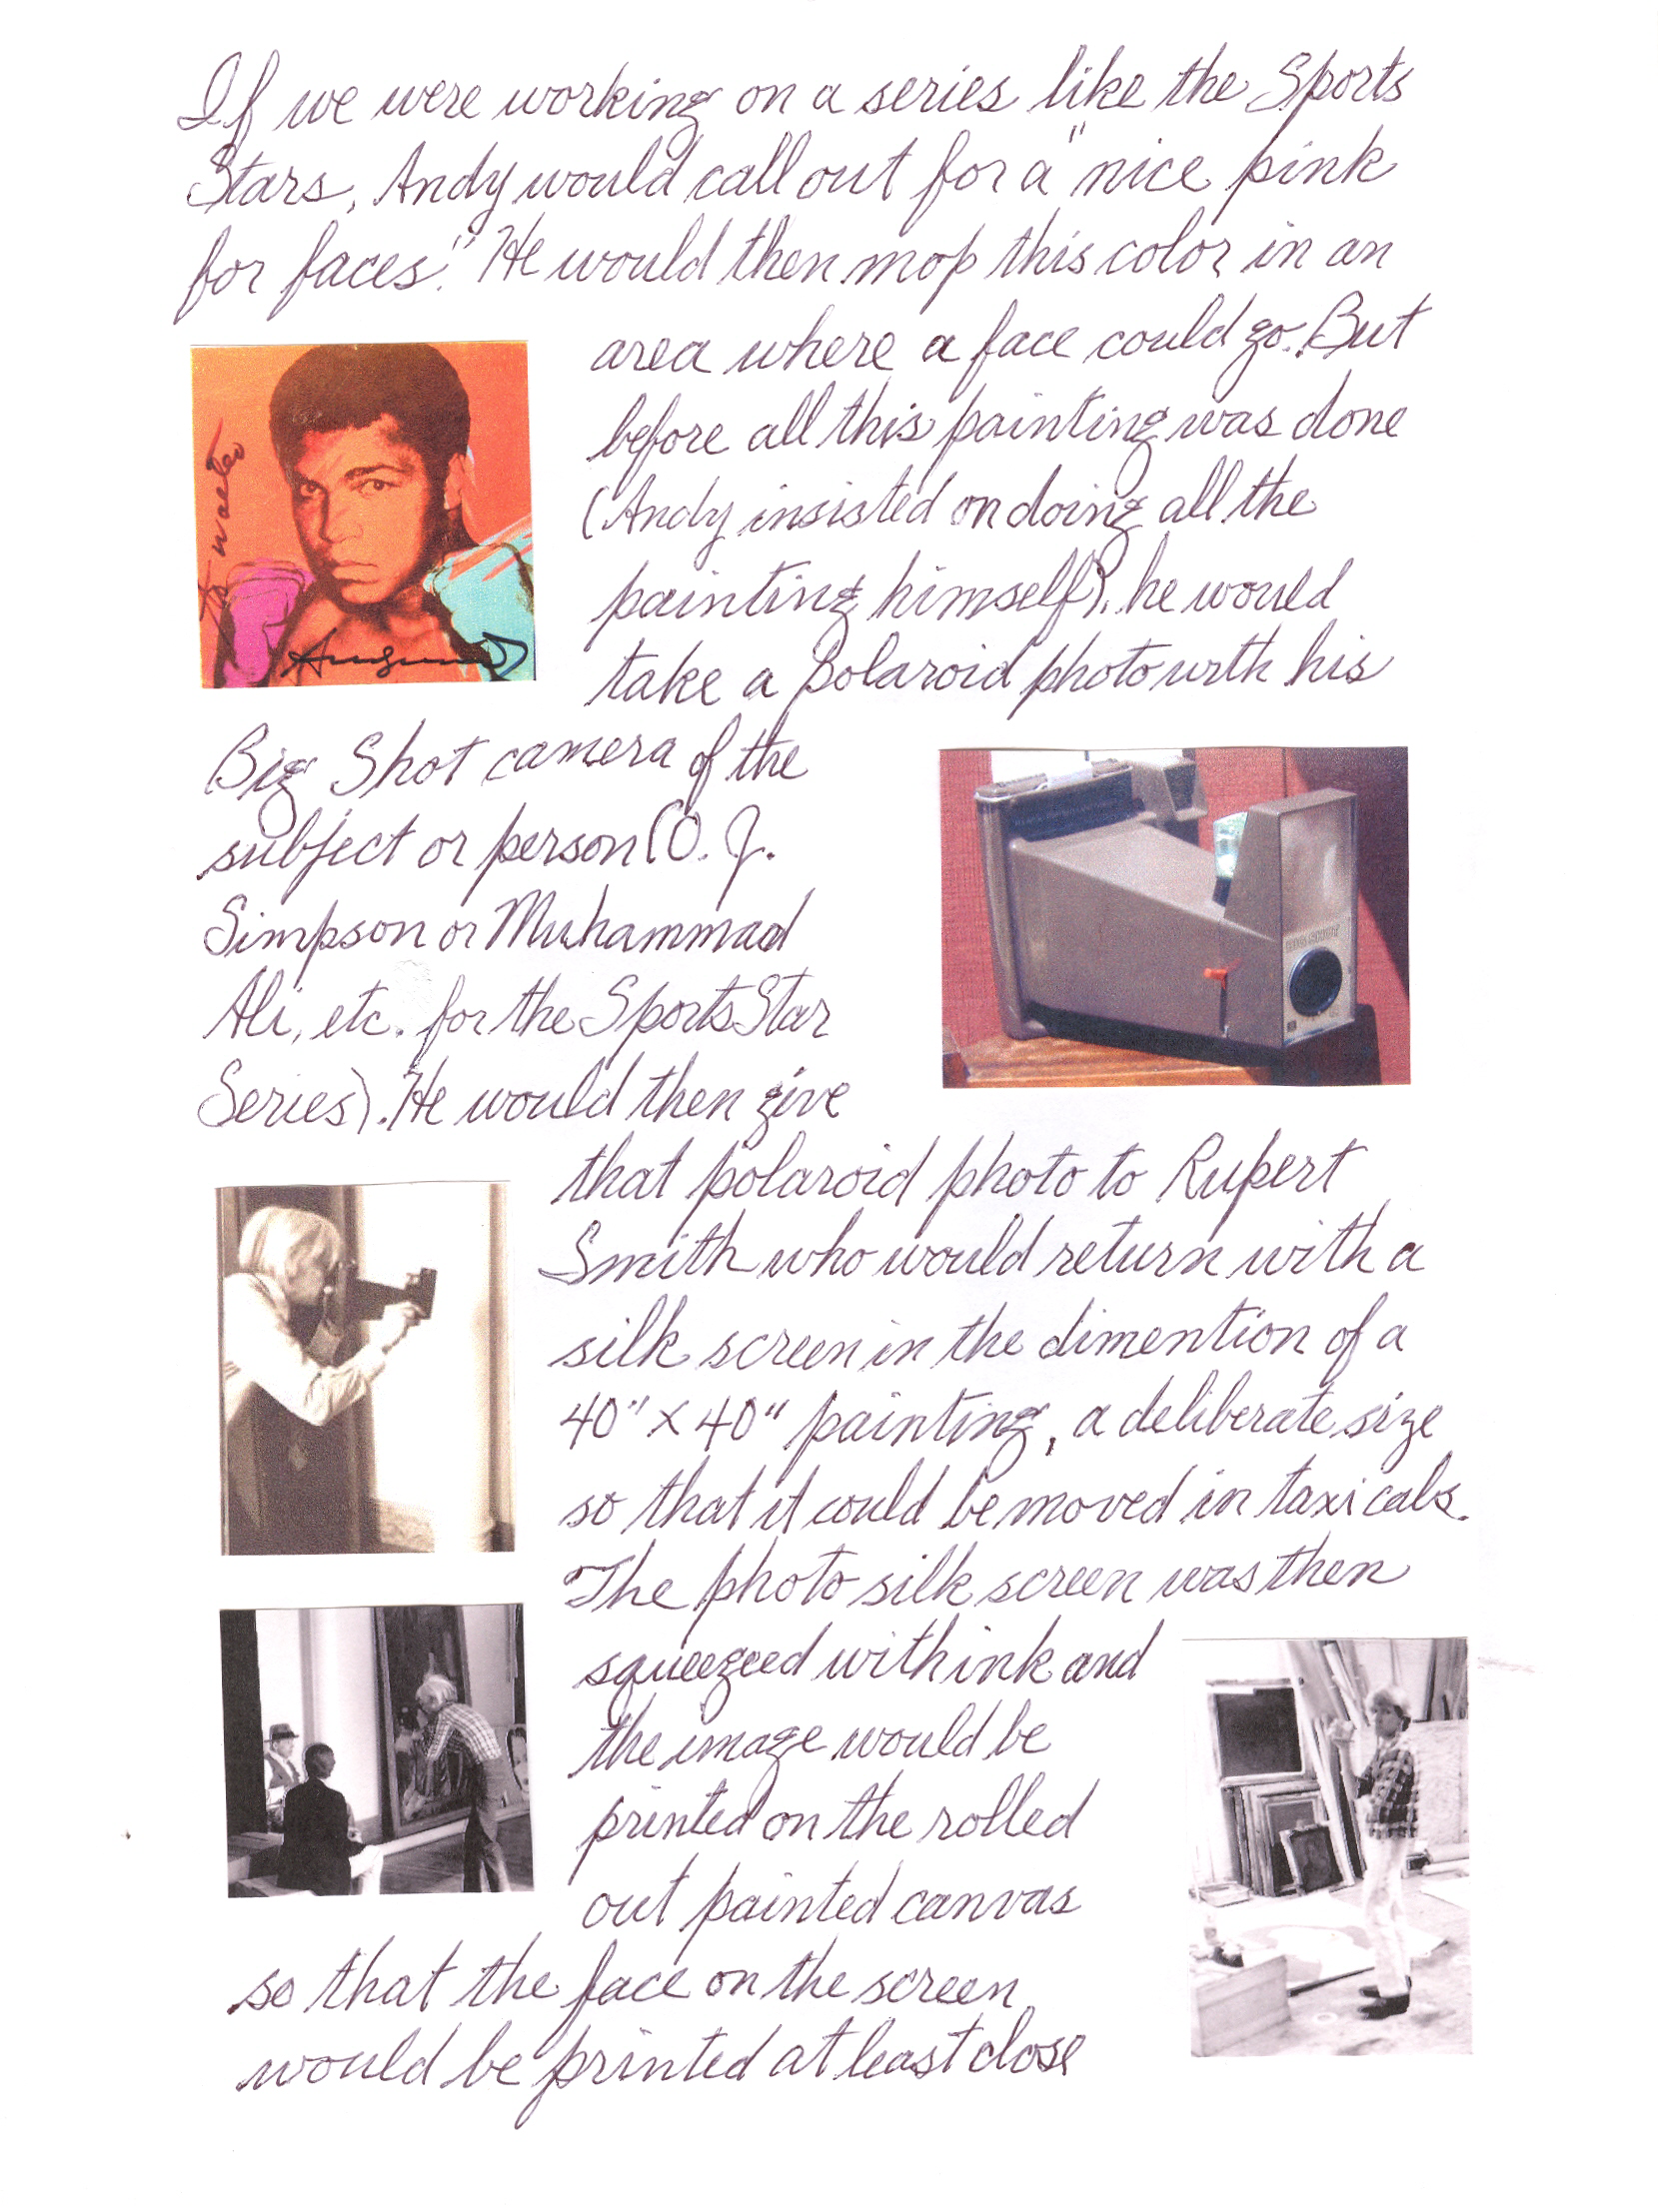 If we were working on a series like the Sports
Stars, Andy would call out for a "nice pink
for faces." He would then mop this color in an
area where a face could go. But
before all this painting was done
(Andy insisted on doing all the
painting himself), he would
take a polaroid photo with his
Big Shot camera of the
subject or person (O. J.
Simpson or Muhammad
Ali, etc. for the Sports Star
Series). He would then give
that polaroid photo to Rupert
Smith who would return with a
silk screen in the dimention of a
40" x 40" painting, a deliberate size
so that it could be moved in taxi cabs.
The photo silk screen was then
squeegeed with ink and
the image would be
printed on the rolled
out painted canvas
so that the face on the screen
would be printed at least close
to walter
BIG SHOT